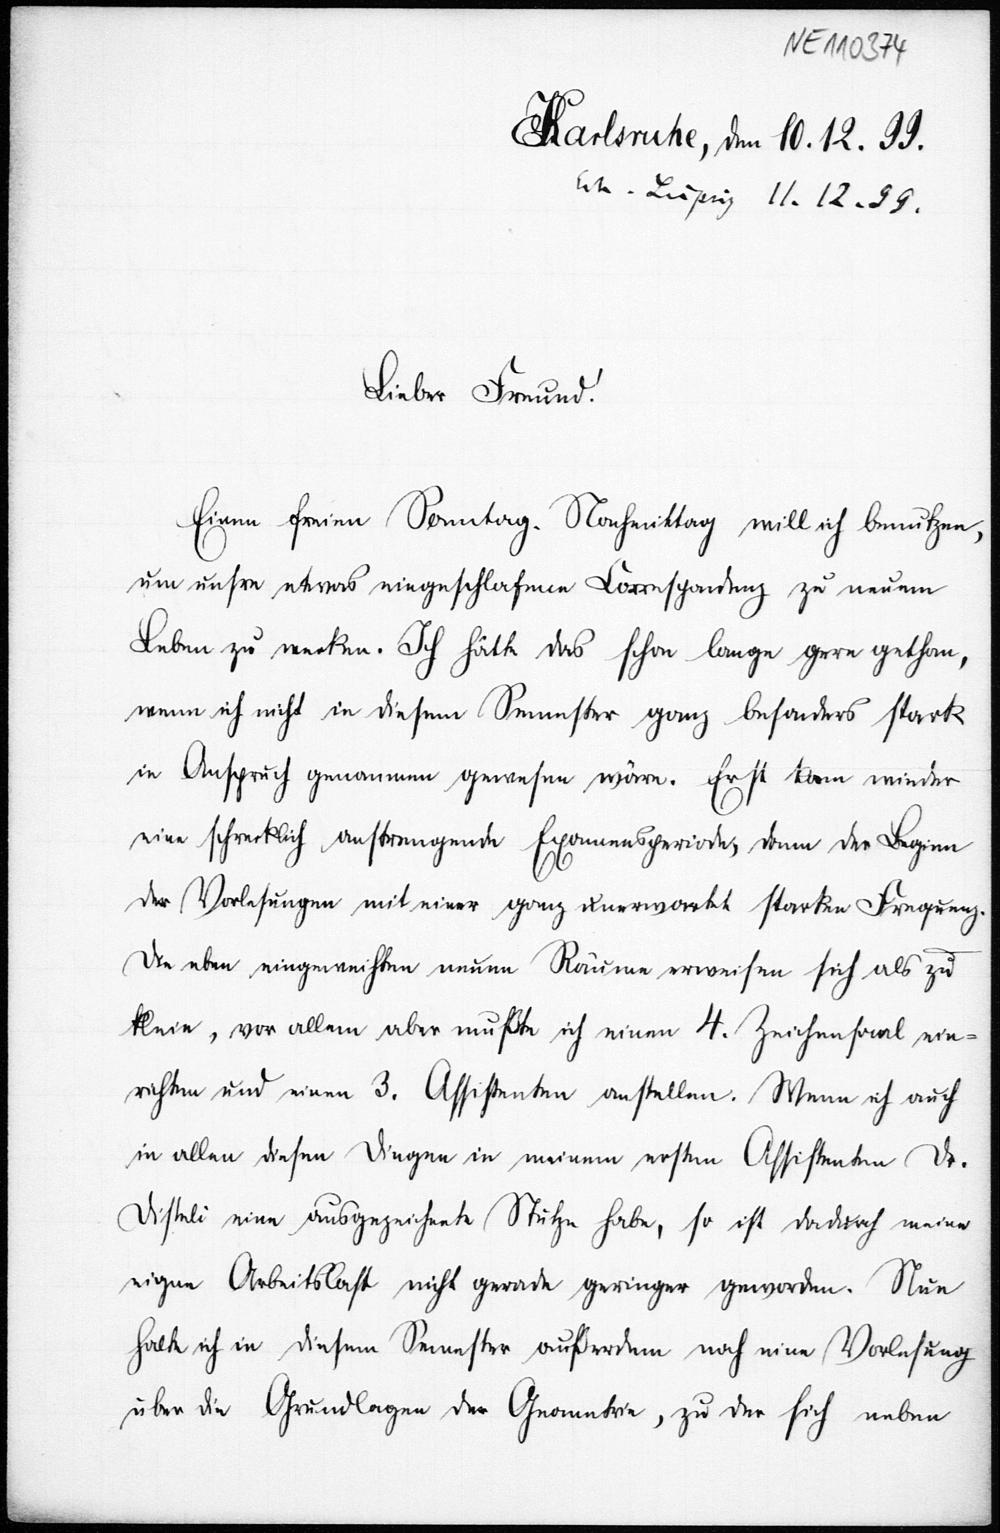 NE110374
Karlsruhe, den 10.12.99.
Leipzig 11.12.99.
Lieber Freund!
Einen freien Sonntag-Nachmittag will ich benutzen,
um unsre etwas eingeschlafene Correspondenz zu neuem
Leben zu wecken. Ich hätte das schon lange gern gethan,
wenn ich nicht in diesem Semester ganz besonders stark
in Anspruch genommen gewesen wäre. Erst kam wieder
eine schrecklich anstrengende Examensperiode, dann der Beginn
der Vorlesungen mit einer ganz unerwartet starken Frequenz.
Die eben eingeweihten neuen Räume erweisen sich als zu
klein, vor allem aber mußte ich einen 4. Zeichensaal ein-
richten und einen 3. Assistenten anstellen. Wenn ich auch
in allen diesen Dingen in meinem ersten Assistenten Dr.
Disteli eine ausgezeichnete Stütze habe, so ist dadurch meine
eigne Arbeitslast nicht gerade geringer geworden. Nun
halte ich in diesem Semester außerdem noch eine Vorlesung
über die Grundlagen der Geometrie, zu der sich neben